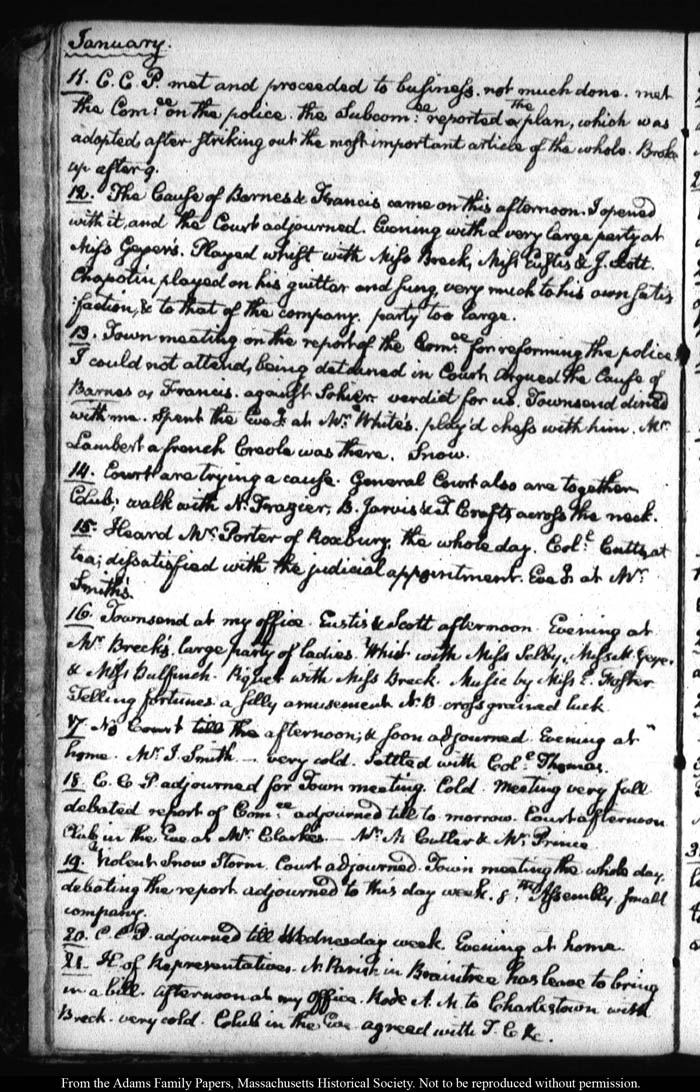 January.
11. C. C. P. met and proceeded to business. not much done. met
the Com:ee on the police. the Subcom:ee reported a the plan, which was
adopted after striking out the most important article of the whole. Broke
up after 9.
12. The Cause of Barnes & Francis came on this afternoon. I opened
with it, and the Court adjourned. Evening with a very large party at
Miss Geyer's. Played whist with Miss Breck, Miss Eustis & J. Scott.
Chapotin played on his guittar and sung very much to his own satis
:faction, & to that of the company. party too large.
13. Town meeting on the report of the Com:ee for reforming the police
I could not attend, being detained in Court. Argued the Cause of
Barnes as Francis. against Sohier. verdict for us. Townsend dined
with me. Spent the Eveg at Mr. White's. play'd chess with him. Mr.
Lambert a french Creole was there. Snow.
14. Court are trying a cause. General Court also are together
Club; walk with N. Frazier, B. Jarvis & T. Crafts across the neck.
15. Heard Mr. Porter of Roxbury, the whole day. Col: Cutts at
tea; dissatisfied with the judicial appointment. Eveg at Mr.
Smith's.
16. Townsend at my office. Eustis & Scott afternoon. Evening at
Mr. Breck's. large party of ladies. Whist with Miss Selby, Miss M. Geyer
& Miss Bulfinch. Piquet with Miss Breck. Music by Miss E. Foster
Telling fortunes a silly amusement. N. B. cross grained luck
17. No Court till the afternoon; & soon adjourned. Evening at
home. Mr. J. Smith — very cold. Settled with Col: Thomas.
18. C. C. P. adjourned for Town meeting. Cold. Meeting very full
debated report of Com:ee adjourned till to morrow. Court afternoon
Club in the Eve at Mr. Clarke's — Mr. N. Cutler & Mr. Prince
19. Violent Snow Storm. Court adjourned. Town meeting the whole day.
debating the report adjourned to this day week. 8.th Assembly. Small
company.
20. C. C. P. adjourned till Wednesday week. Evening at home.
21. H. of Representatives. N. Parish in Braintree has leave to bring
in a bill. Afternoon at my Office. Rode A. M. to Charlestown with
Breck. very cold. Club in the Eve agreed with T. C &c.
From the Adams Family Papers, Massachusetts Historical Society. Not to be reproduced without permission.